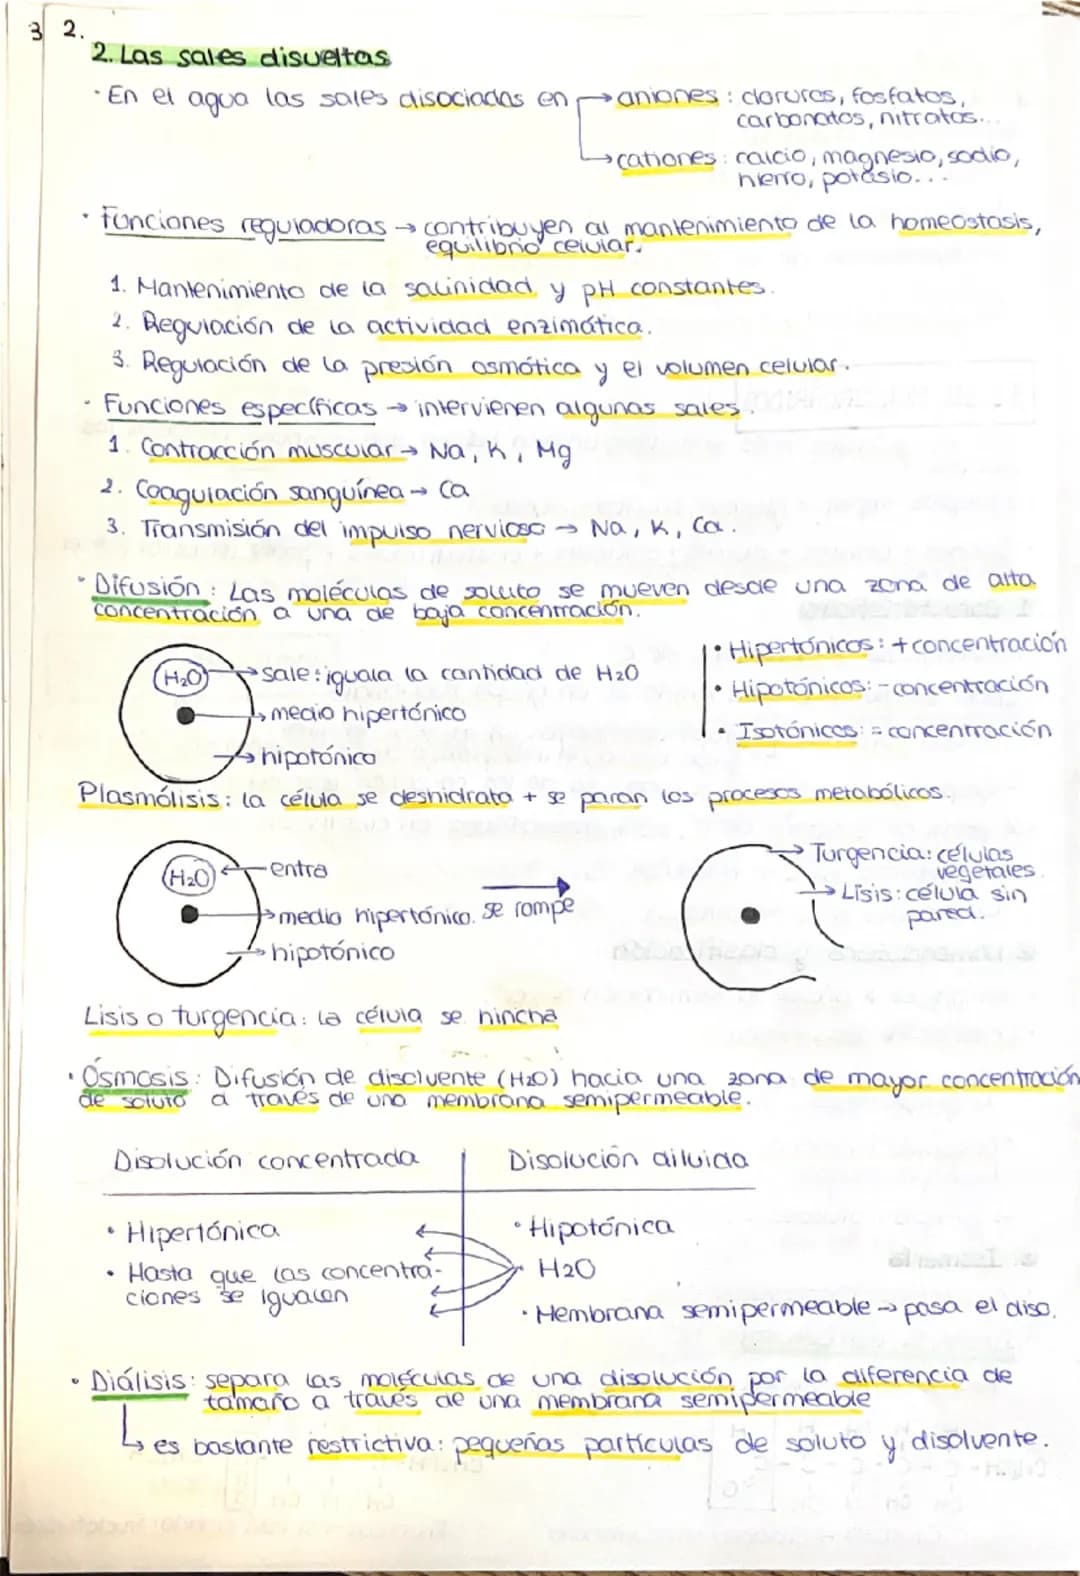 3 2.
2. Las sales disueltas
· En el agua las sales disociadas en → aniones: cloruros, fosfatos,
carbonatos, nitratos...
→ cationes: calcio, magnesio, sodio,
hierro, potasio...
· Funciones reguladoras → contribuyen al mantenimiento de la homeostasis,
equilibrio celular.
1. Mantenimiento de la salinidad y pH constantes.
2. Regulación de la actividad enzimática.
3. Regulación de la presión osmótica y el volumen celular.
· Funciones específicas → intervienen algunas sales.
1. Contracción muscular → Na, K, Mg
2. Coagulación sanguínea → Ca
3. Transmisión del impulso nervioso → Na, K, Ca.
· Difusión: Las moléculas de soluto se mueven desde una zona de alta
concentración a una de baja concentración.
H2O → sale: iguala la cantidad de H2O
→ medio hipertónico
→ hipotónico
· Hipertónicos: + concentración
· Hipotónicos: - concentración
· Isotónicos: = concentración
Plasmólisis: la célula se deshidrata + se paran los procesos metabólicos.
H2O ← entra
→ medio hipertónico. se rompe
→ hipotónico
→ Turgencia: células
vegetales.
→ Lisis: célula sin
pared.
Lisis o turgencia: la célula se hincha
· Ósmosis: Difusión de disolvente (H2O) hacia una zona de mayor concentración
de soluto a través de una membrana semipermeable.
Disolución concentrada Disolución diluida
· Hipertónica
· Hasta que las concentra-
ciones se igualen
· Hipotónica
H2O
· Membrana semipermeable → pasa el diso.
· Diálisis: separa las moléculas de una disolución por la diferencia de
tamaño a través de una membrana semipermeable
→ es bastante restrictiva: pequeñas partículas de soluto y disolvente.